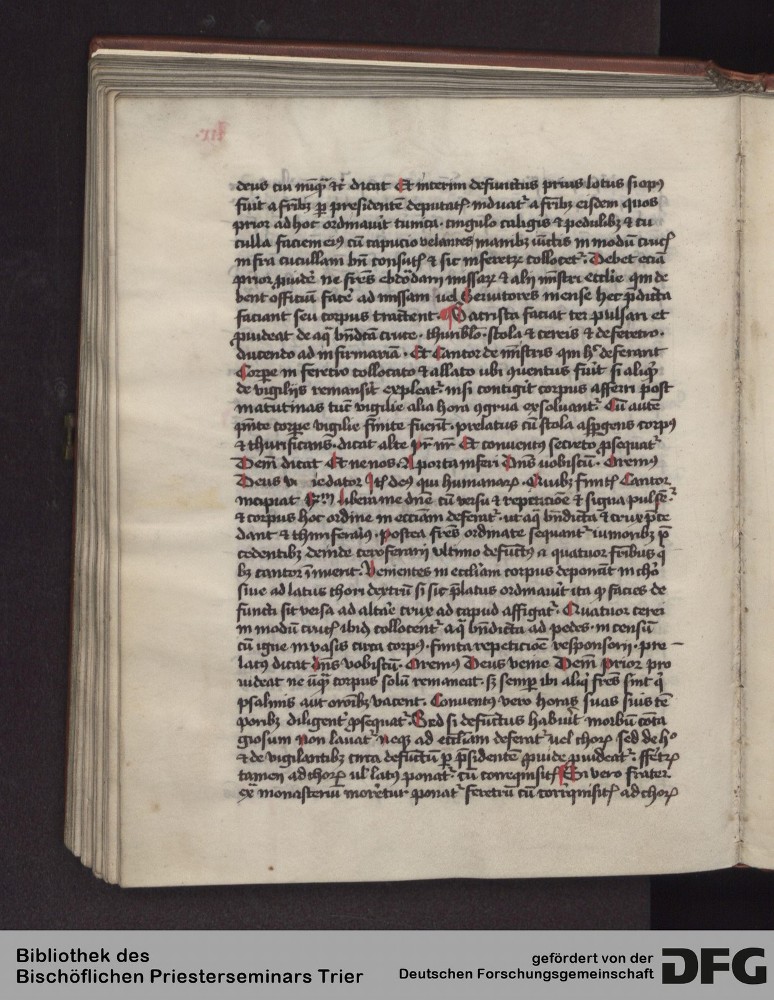 deus cui nūqȝ ⁊c̄ dicat Et interim defunctus prius lotus si opꝰ
fuit a fr̄ibȝ ꝑ presidentē deputatꝭ induat᷑ a fr̄ibȝ eisdem quos
prior ad hoc ordinauit tunica · cingulo caligis ⁊ pedulibȝ ⁊ cu
culla faciem eiꝰ cū capucio velantes manibȝ iūctis in modū crucꝭ
infra cucullam bn̄ consutꝭ ⁊ sic in feretro collocet᷑ · Debet eciā
prior ꝓuidē ne fr̄es ebdōdarij missaꝝ ⁊ alij mīstri ecclīe qui de
bent officiū facē ad missam uel Seruitores mense hec p̄dicta
faciant seu corpus tractent · Sacrista faciat ter pulsari et
ꝓuideat de aq̄ bn̄dc̄ta cruce · thuriblo · stola ⁊ cereis ⁊ de feretro ·
ducendo ad infirmariā · Et Cantor de mīstris qui hᵒ deferant
Corpe in feretro collocato ⁊ allato ubi ꝯuentus fuit si aliqͥd
de vigilijs remansit expleat᷑ nisi contigit corpus afferri post
matutinas tūc vigilie alia hora ꝯgrua exsoluant᷑ · Cū autē
p̄nte corpe vigilie finite fuerīt · prelatus cū stola asꝑgens corpꝰ
⁊ thurificans · dicat alte pr̄ nr̄ Et conuentꝰ secreto ꝓsequat᷑
Dem̄ dicat Et ne nos · A porta inferi Dn̄s uobiscū · Oremꝰ
incipiat Libera me dn̄e cū versu ⁊ repeticiōe ⁊ signa pulsēt᷑
⁊ corpus hoc ordine in ecclīam deferat᷑ · ut aq̄ bn̄dicta ⁊ crux p̄ce
dant ⁊ thuriferariꝰ · postea fr̄es ordinate sequant᷑ iunioribȝ p̄
cedentibȝ deinde ceroferarij vltimo defūctꝰ a quatuor fr̄ibus qͥ
bȝ cantor īiūxerit · Venientes in eccl̄iam corpus deponāt in chᵒ
siue ad latus chori dextrū si sic p̄latus ordinauit ita ꝙ facies de
functi sit versa ad altar̄e crux ad capud affigat᷑ · Quatuor cerei
in modū crucꝭ ibid̄ collocent᷑ aq̄ bn̄dicta ad pedes · in censū
cū igne in vasis circa corpꝰ · finita repeticiōe responsorij · pre
latꝰ dicat dn̄s vobiscū · Oremꝰ Deus venie Dem̄ Prior pro
uideat ne ūqȝ corpus solū remaneat · sȝ semꝑ ibi aliqͥ fr̄es sint qͥ
psalmis aut orōibȝ vacent · Conuentꝰ vero horas suas suis tē
poribȝ diligent᷑ ꝓsequat᷑ · Sed si defūctus habuit morbū cōta
giosum non lauat᷑ neqȝ ad eccl̄iam deferat᷑ uel choꝝ sed de hᵒ
⁊ de vigilantibȝ circa defūctū ꝑ p̄sidentē ꝓuide ꝓuideat᷑ · ffetrꝝ
tamen ad choꝝ ul̓ latꝰ ponat᷑ cū correquisitꝭ Cū vero frater
ex̄ monasteriū moretur ponat᷑ feretrū cū correquisitꝭ ad choꝝ
Bibliothek des
Bischöflichen Priesterseminars Trier
gefördert von der
Deutschen Forschungsgemeinschaft
DFG